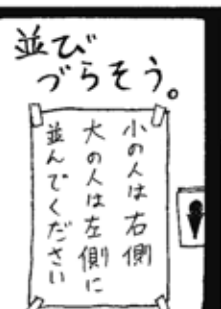 並び
づらそう。
小の人は右側
大の人は左側に
並んでください